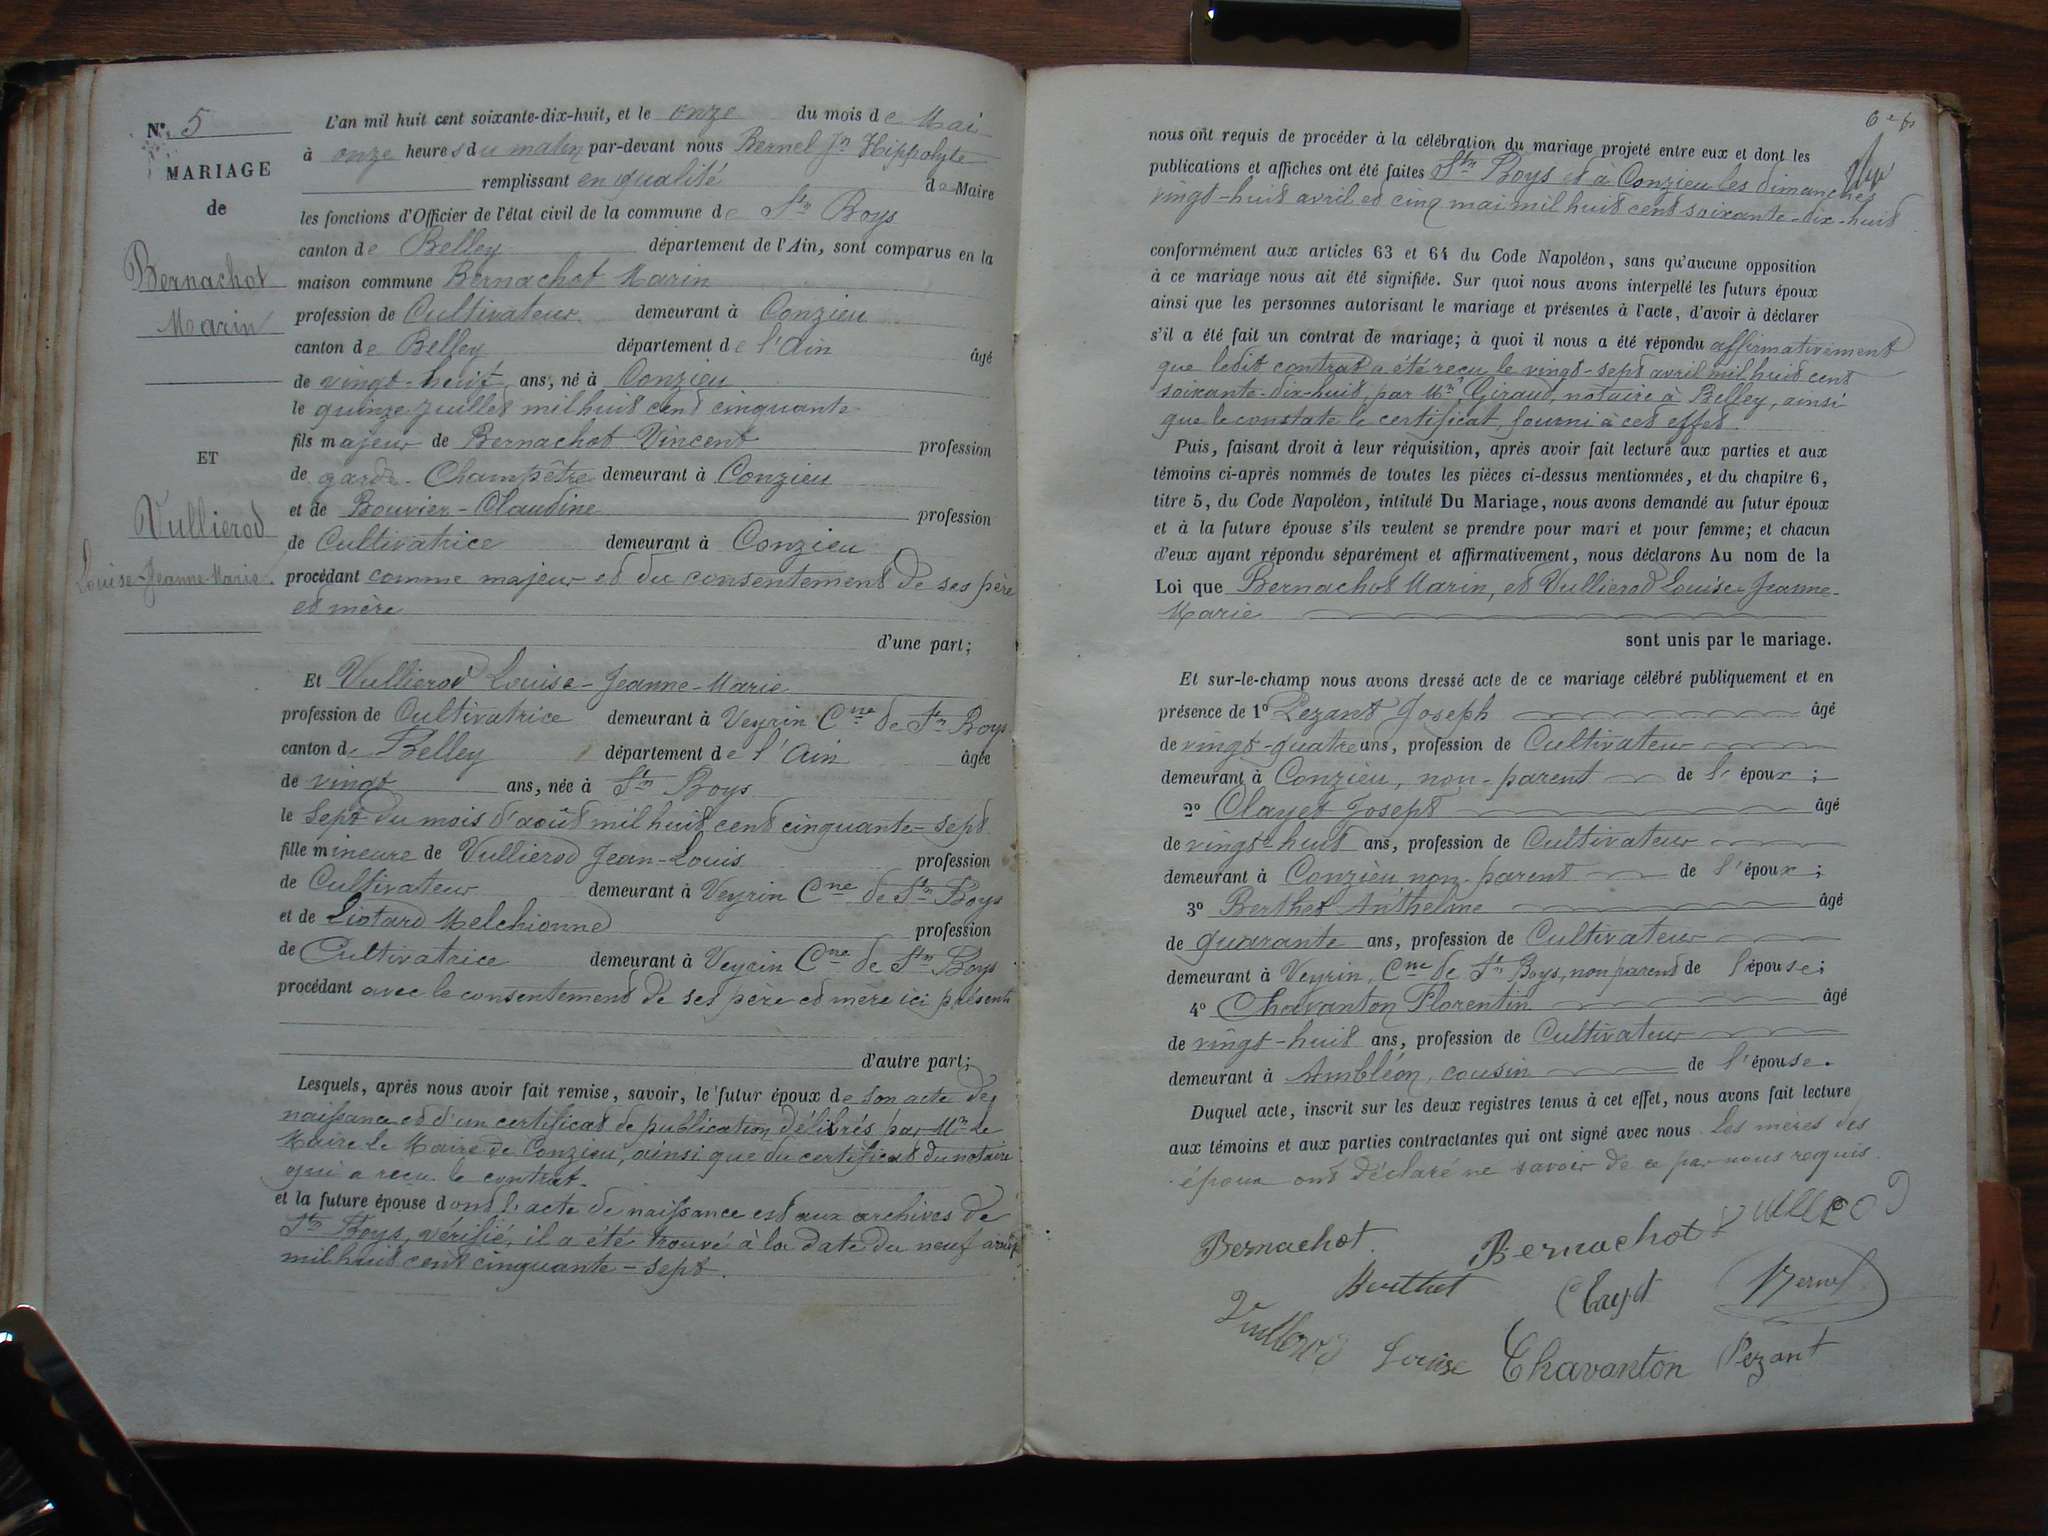 N° 5
MARIAGE
de
Bernachot
Marin
ET
Vullierod
Louise-Jeanne-Marie.
L'an mil huit cent soixante-dix-huit, et le onze du mois de Mai
à onze heures du matin par-devant nous Bernel Jn Hippolyte
remplissant en qualité de Maire
les fonctions d'Officier de l'état civil de la commune de St Boys
canton de Belley département de l'Ain, sont comparus en la
maison commune Bernachot Marin
profession de Cultivateur demeurant à Conzieu
canton de Belley département de l'Ain âgé
de vingt-huit ans, né à Conzieu
le quinze Juillet mil huit cent cinquante
fils majeur de Bernachot Vincent profession
de garde-Champêtre demeurant à Conzieu
et de Bouvier-Claudine profession
de Cultivatrice demeurant à Conzieu
procédant comme majeur et du consentement de ses père
et mère
d'une part;
Et Vullierod Louise-Jeanne-Marie
profession de Cultivatrice demeurant à Veyrin Cne de St Boys
canton de Belley département de l'Ain âgée
de vingt ans, née à St Boys
le sept du mois d'août mil huit cent cinquante-sept
fille mineure de Vullierod Jean-Louis profession
de Cultivateur demeurant à Veyrin Cne de St Boys
et de Liotard Melchionne profession
de Cultivatrice demeurant à Veyrin Cne de St Boys
procédant avec le consentement de ses père et mère ici présents
d'autre part;
Lesquels, après nous avoir fait remise, savoir, le futur époux de son acte de
naissance et d'un certificat de publication délivrés par Mr le
Maire le Maire de Conzieu, ainsi que du certificat du notaire
qui a reçu le contrat.
et la future épouse dont l'acte de naissance est aux archives de
St Boys, vérifié, il a été trouvé à la date du neuf août
mil huit cent cinquante-sept.
nous ont requis de procéder à la célébration du mariage projeté entre eux et dont les
publications et affiches ont été faites St Boys et à Conzieu les dimanches
vingt-huit avril et cinq mai mil huit cent soixante-dix-huit
conformément aux articles 63 et 64 du Code Napoléon, sans qu'aucune opposition
à ce mariage nous ait été signifiée. Sur quoi nous avons interpellé les futurs époux
ainsi que les personnes autorisant le mariage et présentes à l'acte, d'avoir à déclarer
s'il a été fait un contrat de mariage; à quoi il nous a été répondu affirmativement
que ledit contrat a été reçu le vingt-sept avril mil huit cent
soixante-dix-huit, par Mr Giraud, notaire à Belley, ainsi
que le constate le certificat fourni à cet effet.
Puis, faisant droit à leur réquisition, après avoir fait lecture aux parties et aux
témoins ci-après nommés de toutes les pièces ci-dessus mentionnées, et du chapitre 6,
titre 5, du Code Napoléon, intitulé Du Mariage, nous avons demandé au futur époux
et à la future épouse s'ils veulent se prendre pour mari et pour femme; et chacun
d'eux ayant répondu séparément et affirmativement, nous déclarons Au nom de la
Loi que Bernachot Marin, et Vullierod Louise-Jeanne-
Marie
sont unis par le mariage.
Et sur-le-champ nous avons dressé acte de ce mariage célébré publiquement et en
présence de 1° Pezant Joseph âgé
de vingt-quatre ans, profession de Cultivateur
demeurant à Conzieu, non-parent de l'époux;
2° Clayet Joseph âgé
de vingt-huit ans, profession de Cultivateur
demeurant à Conzieu non-parent de l'époux;
3° Berthet Anthelme âgé
de quarante ans, profession de Cultivateur
demeurant à Veyrin, Cne de St Boys, non parent de l'épouse;
4° Chavanton Florentin âgé
de vingt-huit ans, profession de Cultivateur
demeurant à Ambléon, cousin de l'épouse.
Duquel acte, inscrit sur les deux registres tenus à cet effet, nous avons fait lecture
aux témoins et aux parties contractantes qui ont signé avec nous les mères des
époux ont déclaré ne savoir de ce par nous requis.
Bernachot Bernachot Vullierod
Berthet Clayet Bernel
Vullierod Louise Chavanton Pezant